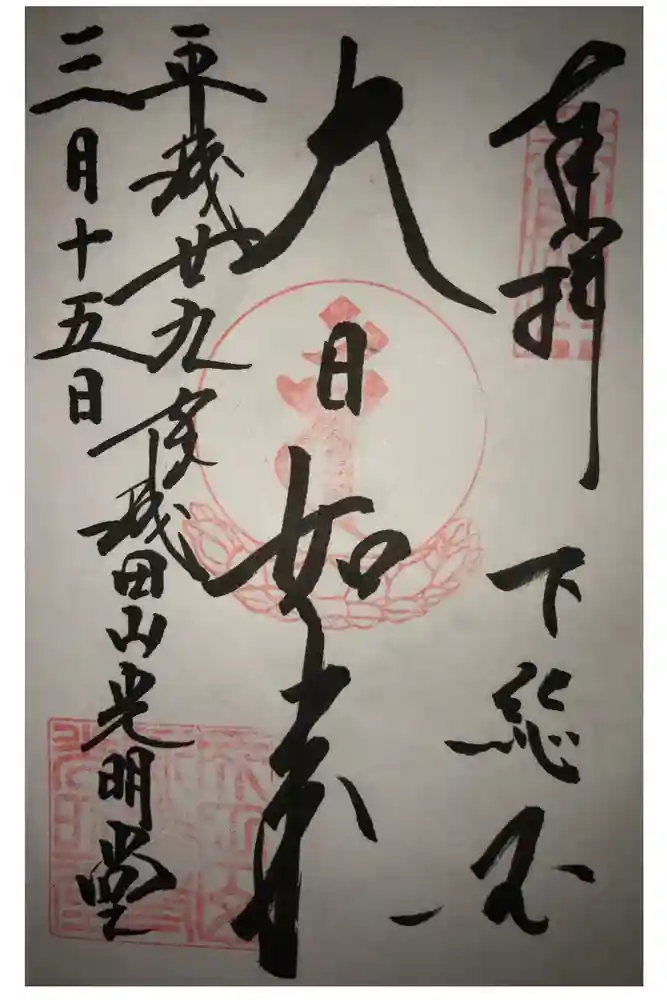 奉拝
下総國
大日如来
平成廿九年
成田山光明堂
三月十五日